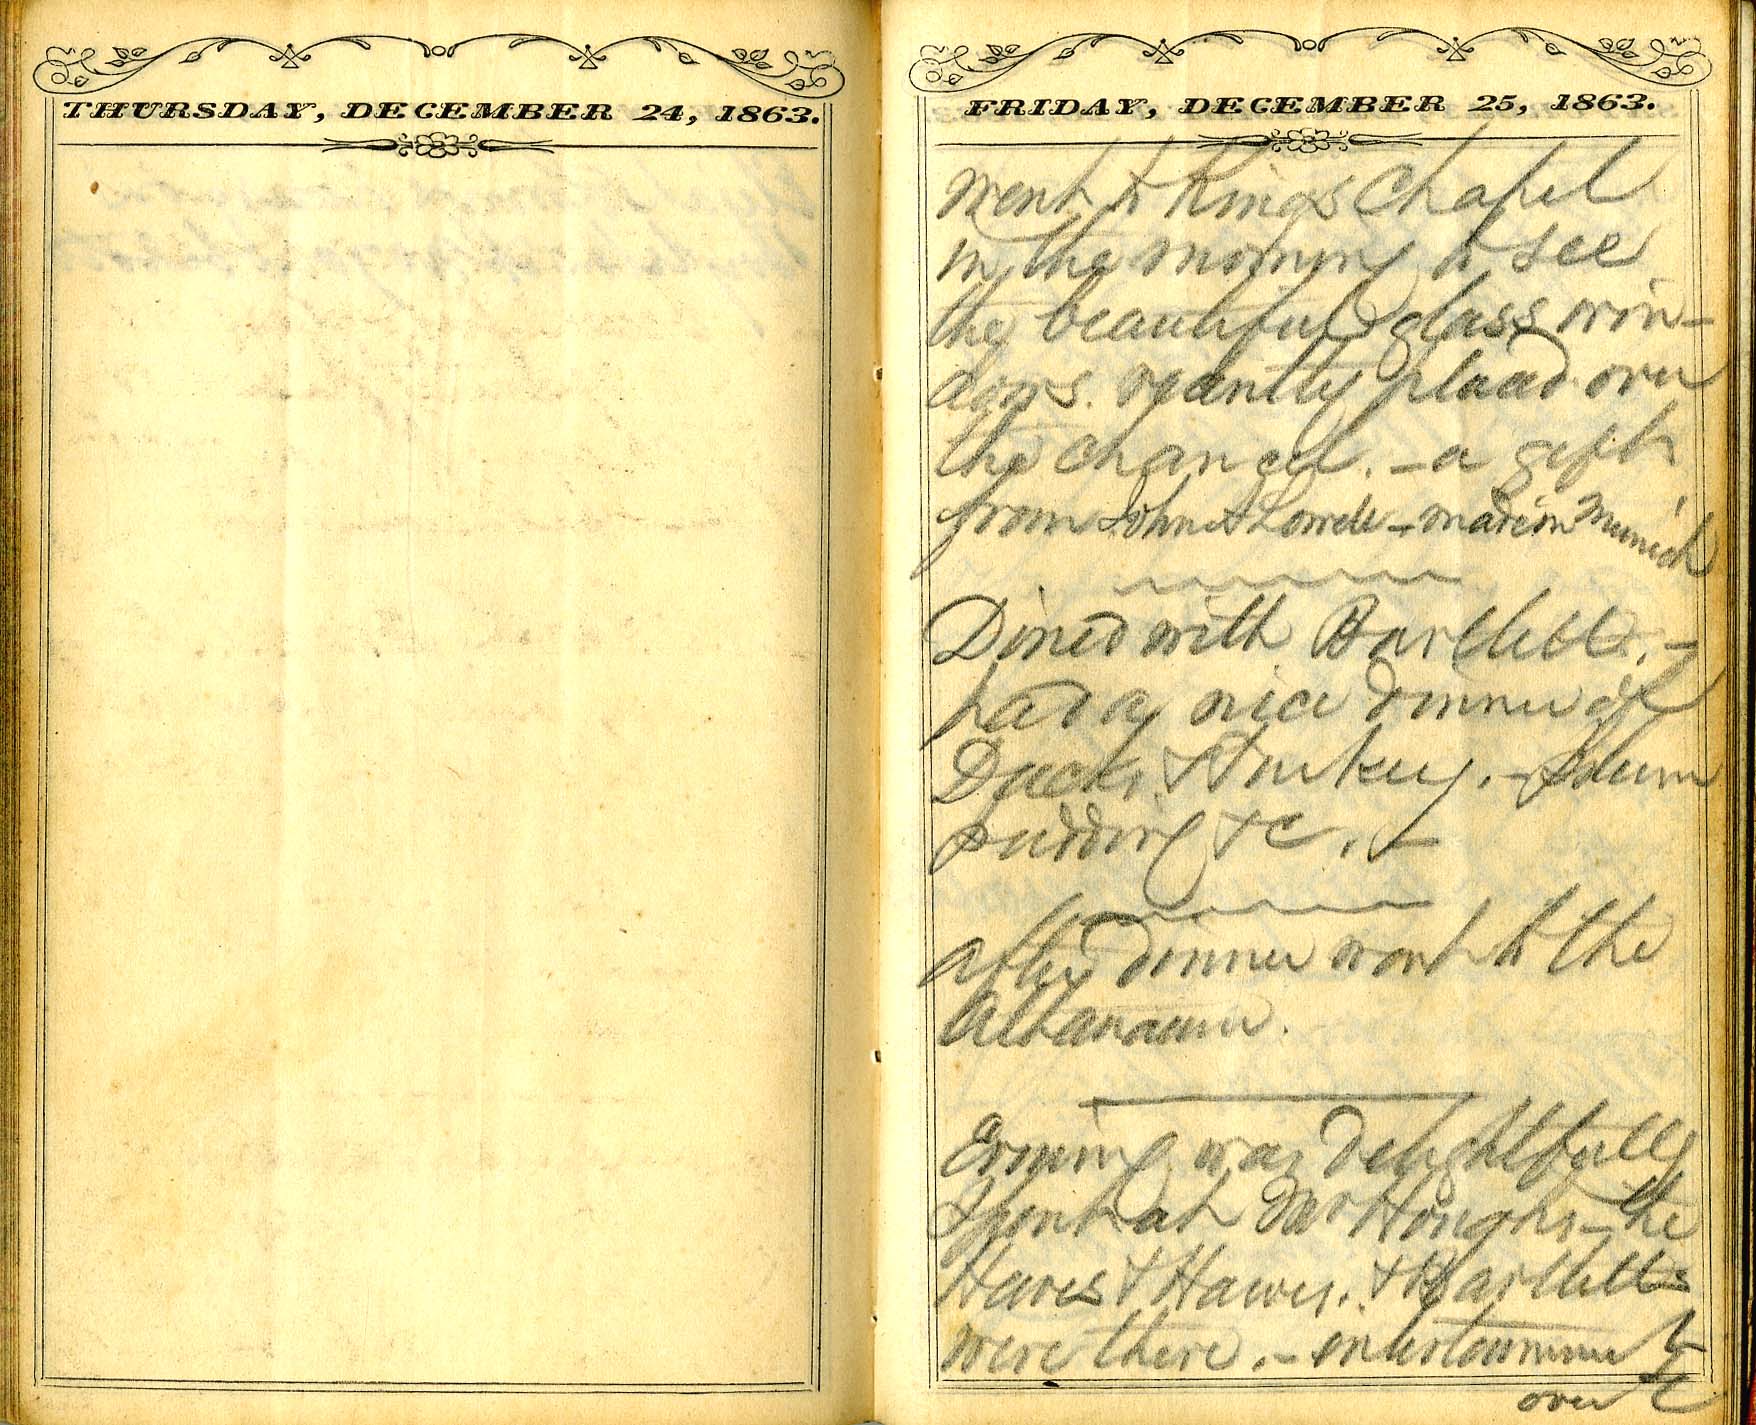 THURSDAY, DECEMBER 24, 1863.
FRIDAY, DECEMBER 25, 1863.
Went to Kings Chapel
in the morning to see
the beautiful glass win-
dows. recently placed over
the chancel. - a gift
from John A Lowell - made in Munich
Dined with Bartletts. -
had a nice dinner of
Ducks & Turkey. - Plum
pudding &c. -
after dinner went to the
Athanaeum.
Evening was delightfully
spent at Mr Houghs - the
Hawes &
were there. - entertainment
over